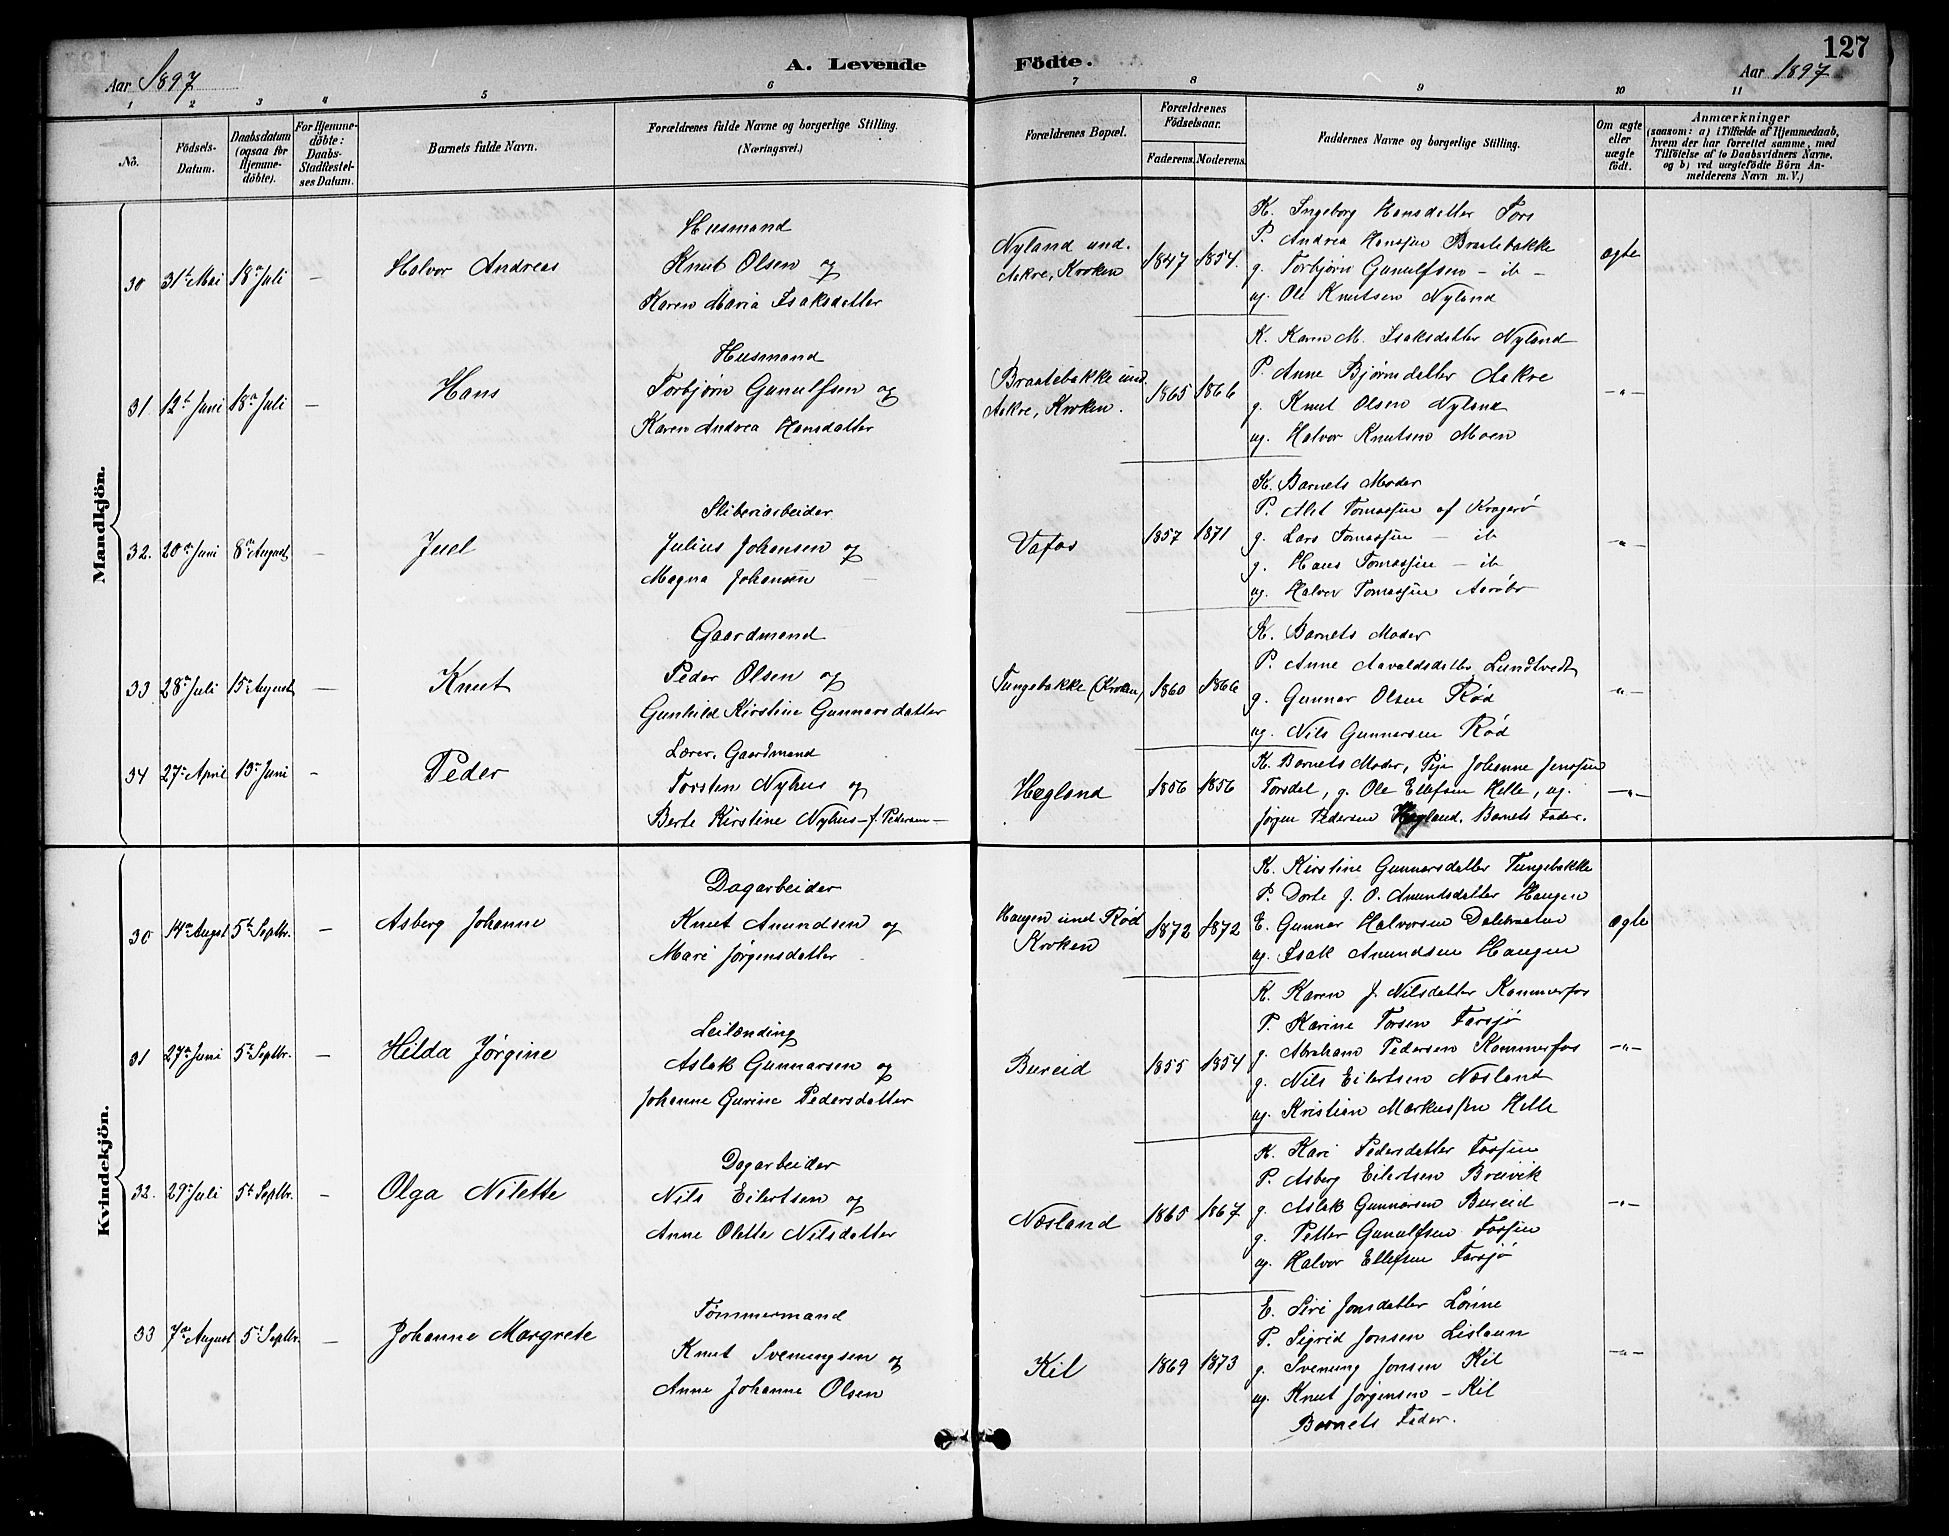 127
Aar 1897
A. Levende
Födte.
Aar 1897
1 2 3 4 5 6 7 8 9 10 11
No.
Födsels-Datum.
Daabsdatum (ogsaa for Hjemme-döbte).
For Hjemme-döbte: Daabs-Stadfæstel-ses Datum.
Barnets fulde Navn.
Forældrenes fulde Navne og borgerlige Stilling.
(Næringsvei.)
Forældrenes Bopæl.
Forældrenes Födselsaar.
Faderens. Moderens.
Faddernes Navne og borgerlige Stilling.
Om ægte eller uægte födt.
Anmærkninger
(saasom: a) i Tilfælde af Hjemmedaab,
hvem der har forrettet samme, med
Tilföielse af to Daabsvidners Navne,
og b) ved uægtefödte Börn An-
melderens Navn m. V.)
Mandkjön.
30 31te Mai 18de Juli — Halvor Andreas
Husmand
Knut Olsen og
Karen Maria Isaksdatter
Nyland und.
Aakre, Kroken
1847 1854.
K. Ingeborg Hansdatter Fors
P. Andrea Hanssen Braatebakke
g. Torbjørn Gunulfsen — ib —
ug. Ole Knutsen Nyland
ægte
31 12te Juni 18de Juli — Hans
Husmand
Torbjørn Gunulfsen og
Karen Andrea Hansdatter
Braatebakke und.
Aakre, Kroken.
1865 1866
K. Karen M. Isaksdatter Nyland
P. Anne Bjørnsdatter Aakre
g. Knut Olsen Nyland
ug. Halvor Knutsen Moen
—"—
32. 20de Juni 8de August — Juel
Sliberiarbeider
Julius Johansen og
Magna Johansen —
Vafos
1857 1871
K. Barnets Moder
P. Alet Tomassen af Kragerø
g. Lars Tomassen — ib
g. Hans Tomassen — ib
ug. Halvor Tomassen Aarøbr
—"—
33 28de Juli 15de August — Knut
Gaardmand
Peder Olsen og
Gunhild Kirstine Gunnarsdatter
Tungebakke (Kroken)
1860 1866
K. Barnets Moder
P. Anne Aavaldsdatter Lundtvedt
g. Gunnar Olsen Rød
ug. Nils Gunnarsen Rød
—"—
34 27de April 13de Juni — Peder
Lærer, Gaardmand
Torsten Nyhus og
Berte Kirstine Nyhus — f. Pedersen —
Hægland
1856 1856
K. Barnets Moder, Pige Johanne Jenssen
Torsdal, g. Ole Ellefsen Helle, ug.
Jørgen Pedersen Hægland. Barnets Fader.
—"—
Kvindekjön.
30 14de August 5te Septbr. — Asberg Johanne
Dagarbeider
Knut Anundsen og
Mari Jørgensdatter
Haugen und Rød
Kroken
1872 1872
K. Kirstine Gunnarsdatter Tungebakke
P. Dorte J. O. Anundsdatter Haugen
E. Gunnar Halvorsen Dalebraaten
ug. Isak Anundsen Haugen
ægte
31 27de Juni 5te Septbr. — Hilda Jørgine
Leilænding
Aslak Gunnarsen og
Johanne Gurine Pedersdatter
Bureid
1855 1854
K. Karen J. Nilsdatter Kammerfos
P. Karine Torsen Farsjø
g. Abraham Pedersen Kammerfos
g. Nils Eilertsen Næsland
ug. Kristian Markussen Helle
—"—
32. 29de Juli 5te Septbr. — Olga Nilette
Dagarbeider
Nils Eilertsen og
Anne Olette Nilsdatter
Næsland
1865 1867
K. Kari Pedersdatter Fossen
P. Asberg Eilertsen Breivik
g. Aslak Gunnarsen Bureid
g. Petter Gunulfsen Fossen
ug. Halvor Ellefsen Farsjø
—"—
33 7de August 5te Septbr. — Johanne Margrete
Tømmermand
Knut Svenungsen og
Anne Johanne Olsen
Kil
1869 1873
E. Siri Jonsdatter Lønne
P. Sigrid Jonsen Lislaun
g. Svenung Jonsen Kil
ug. Knut Jørgensen — Kil
Barnets Fader.
—"—